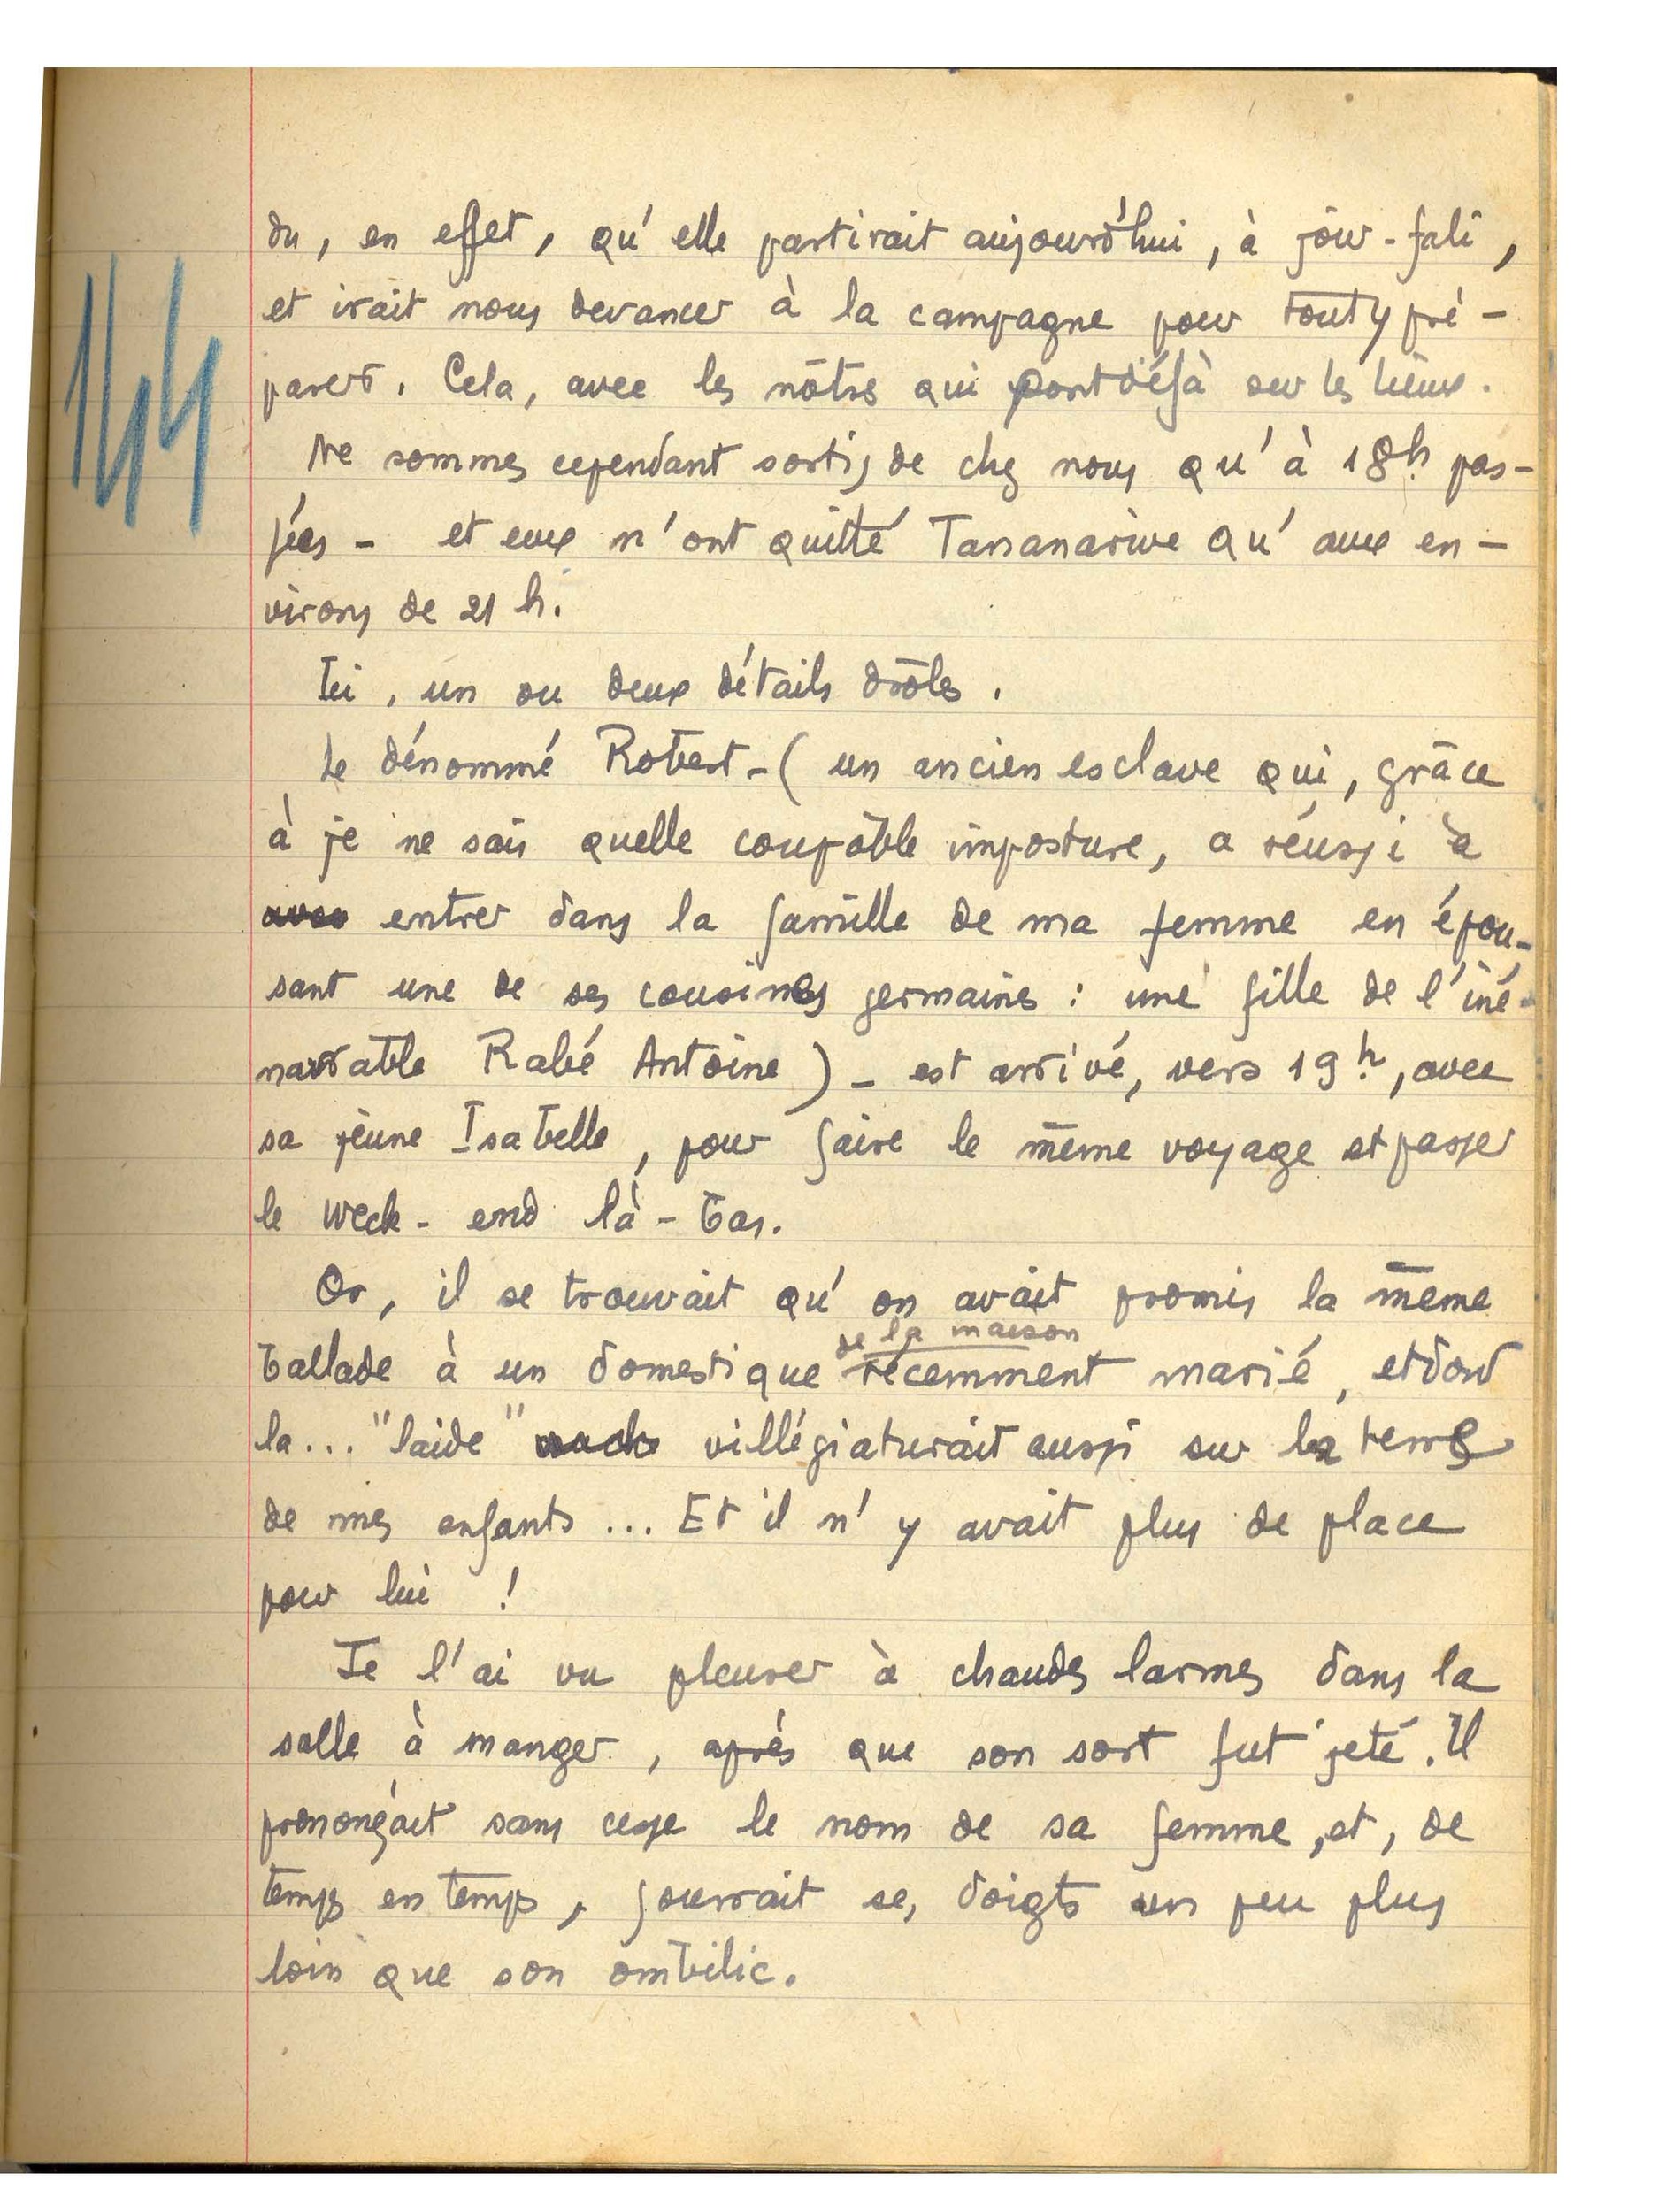 du, en effet, qu'elle partirait aujourd'hui, à jour-fali,
et irait nous devancer à la campagne pour tout y pré-
parer. Cela, avec les nôtres qui sont déjà sur les lieux.
144
Ne sommes cependant sortis de chez nous qu'à 18h pas-
sées - et eux n'ont quitté Tananarive qu'aux en-
virons de 21 h.
Ici, un ou deux détails drôles.
Le dénommé Robert - (un ancien esclave qui, grâce
à je ne sais quelle coupable imposture, a réussi à
entrer dans la famille de ma femme en épou-
sant une de ses cousines germaines : une fille de l'iné-
narrable Rabé Antoine) - est arrivé, vers 19h, avec
sa jeune Isabelle, pour faire le même voyage et passer
le week-end là-bas.
Or, il se trouvait qu'on avait promis la même
ballade à un domestique de la maison récemment marié, et dont
la... "laide" villégiaturait aussi sur la terre
de mes enfants... Et il n'y avait plus de place
pour lui !
Je l'ai vu pleurer à chaudes larmes dans la
salle à manger, après que son sort fut jeté. Il
prononçait sans cesse le nom de sa femme, et, de
temps en temps, fourrait ses doigts un peu plus
loin que son ombilic.